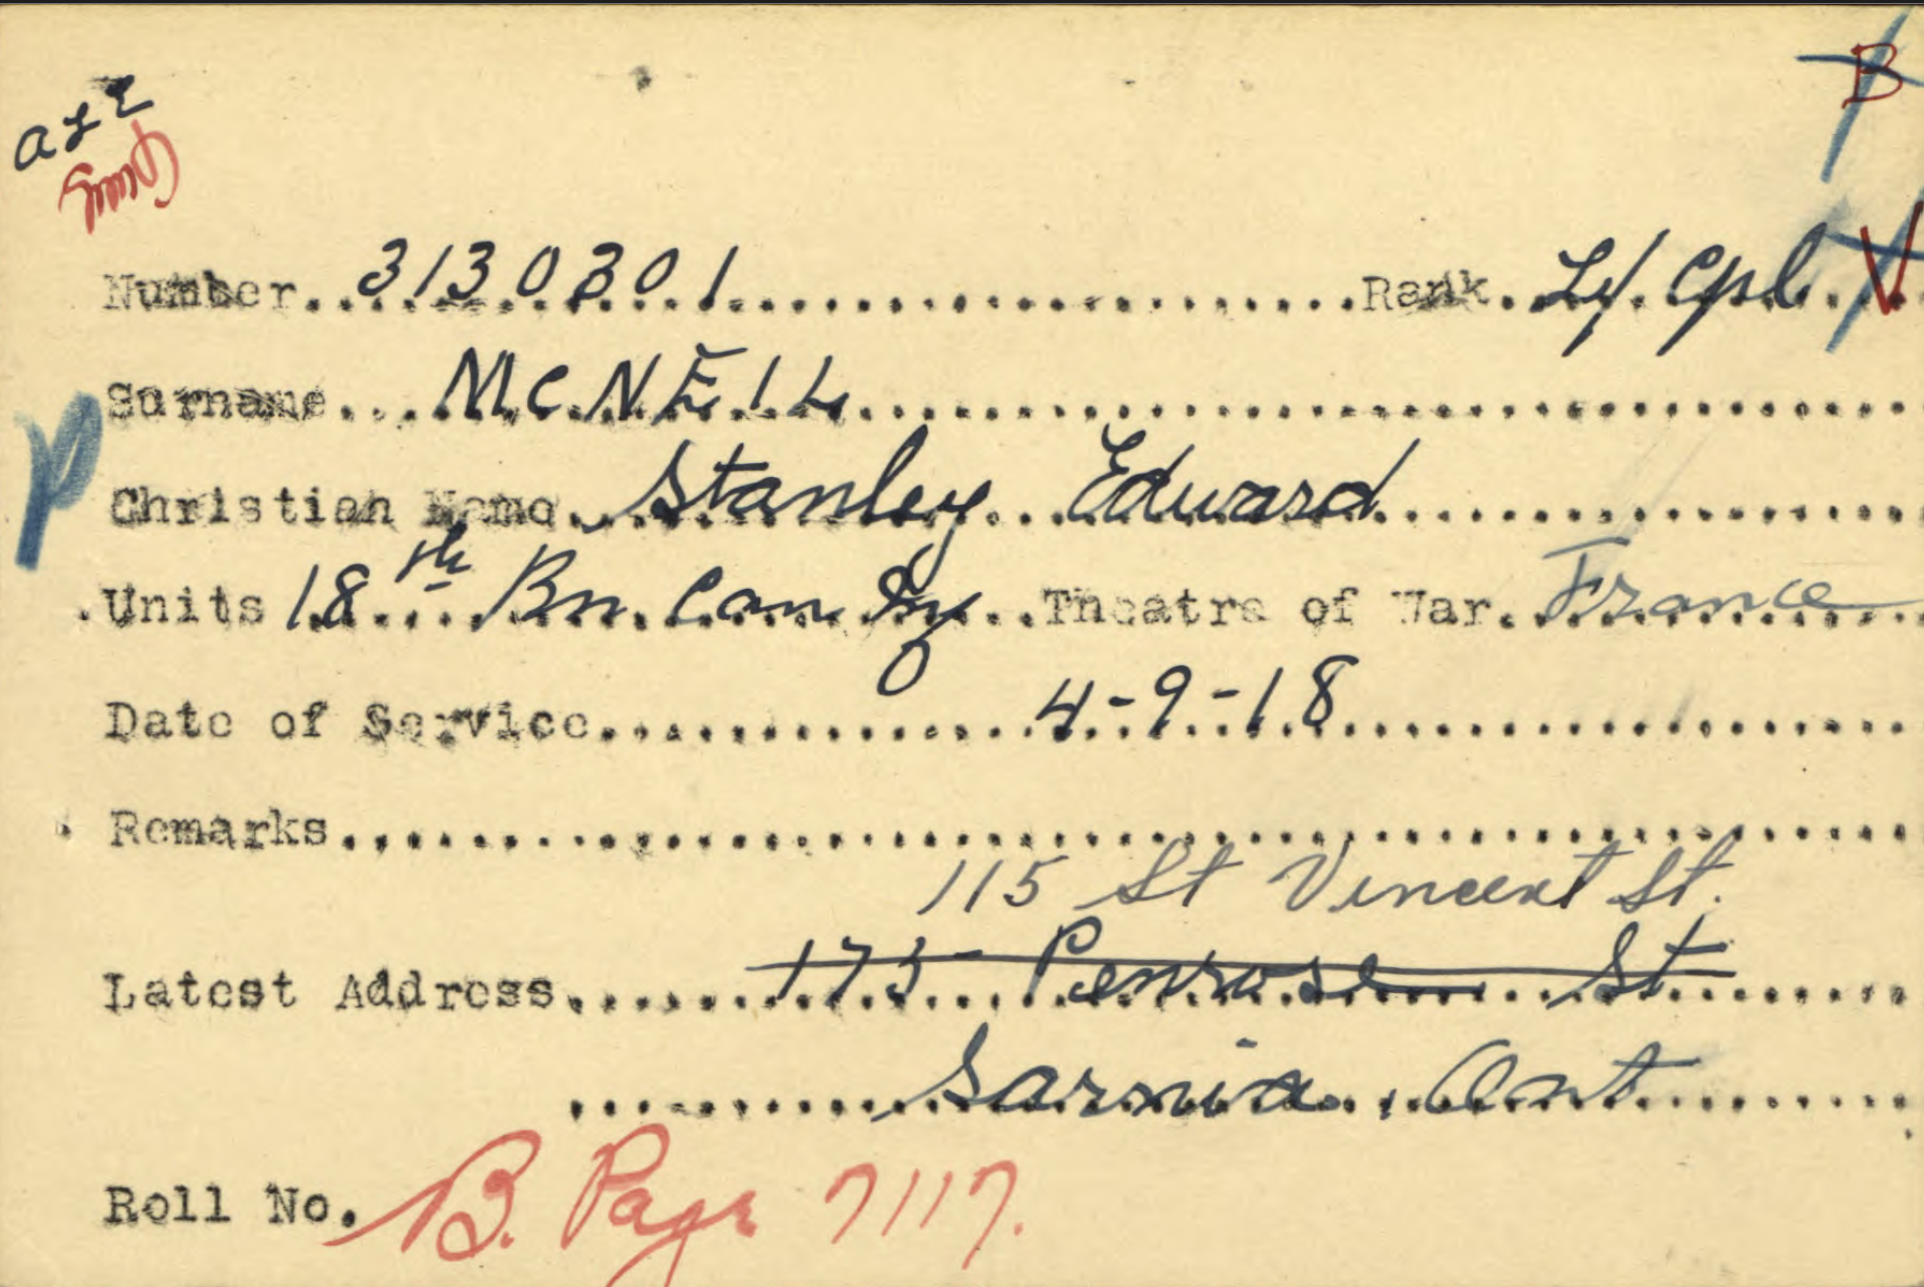 B
Number 3130301 Rank L/Cpl V
Surname MCNEIL
P
Christian Name Stanley Edward
Units 18th Bn. Can. Theatre of War. France
Date of Service 4-9-18
Remarks
115 St Vincent St.
Latest Address 175 Penrose St
Sarnia, Ont
Roll No. B. Page 7117.